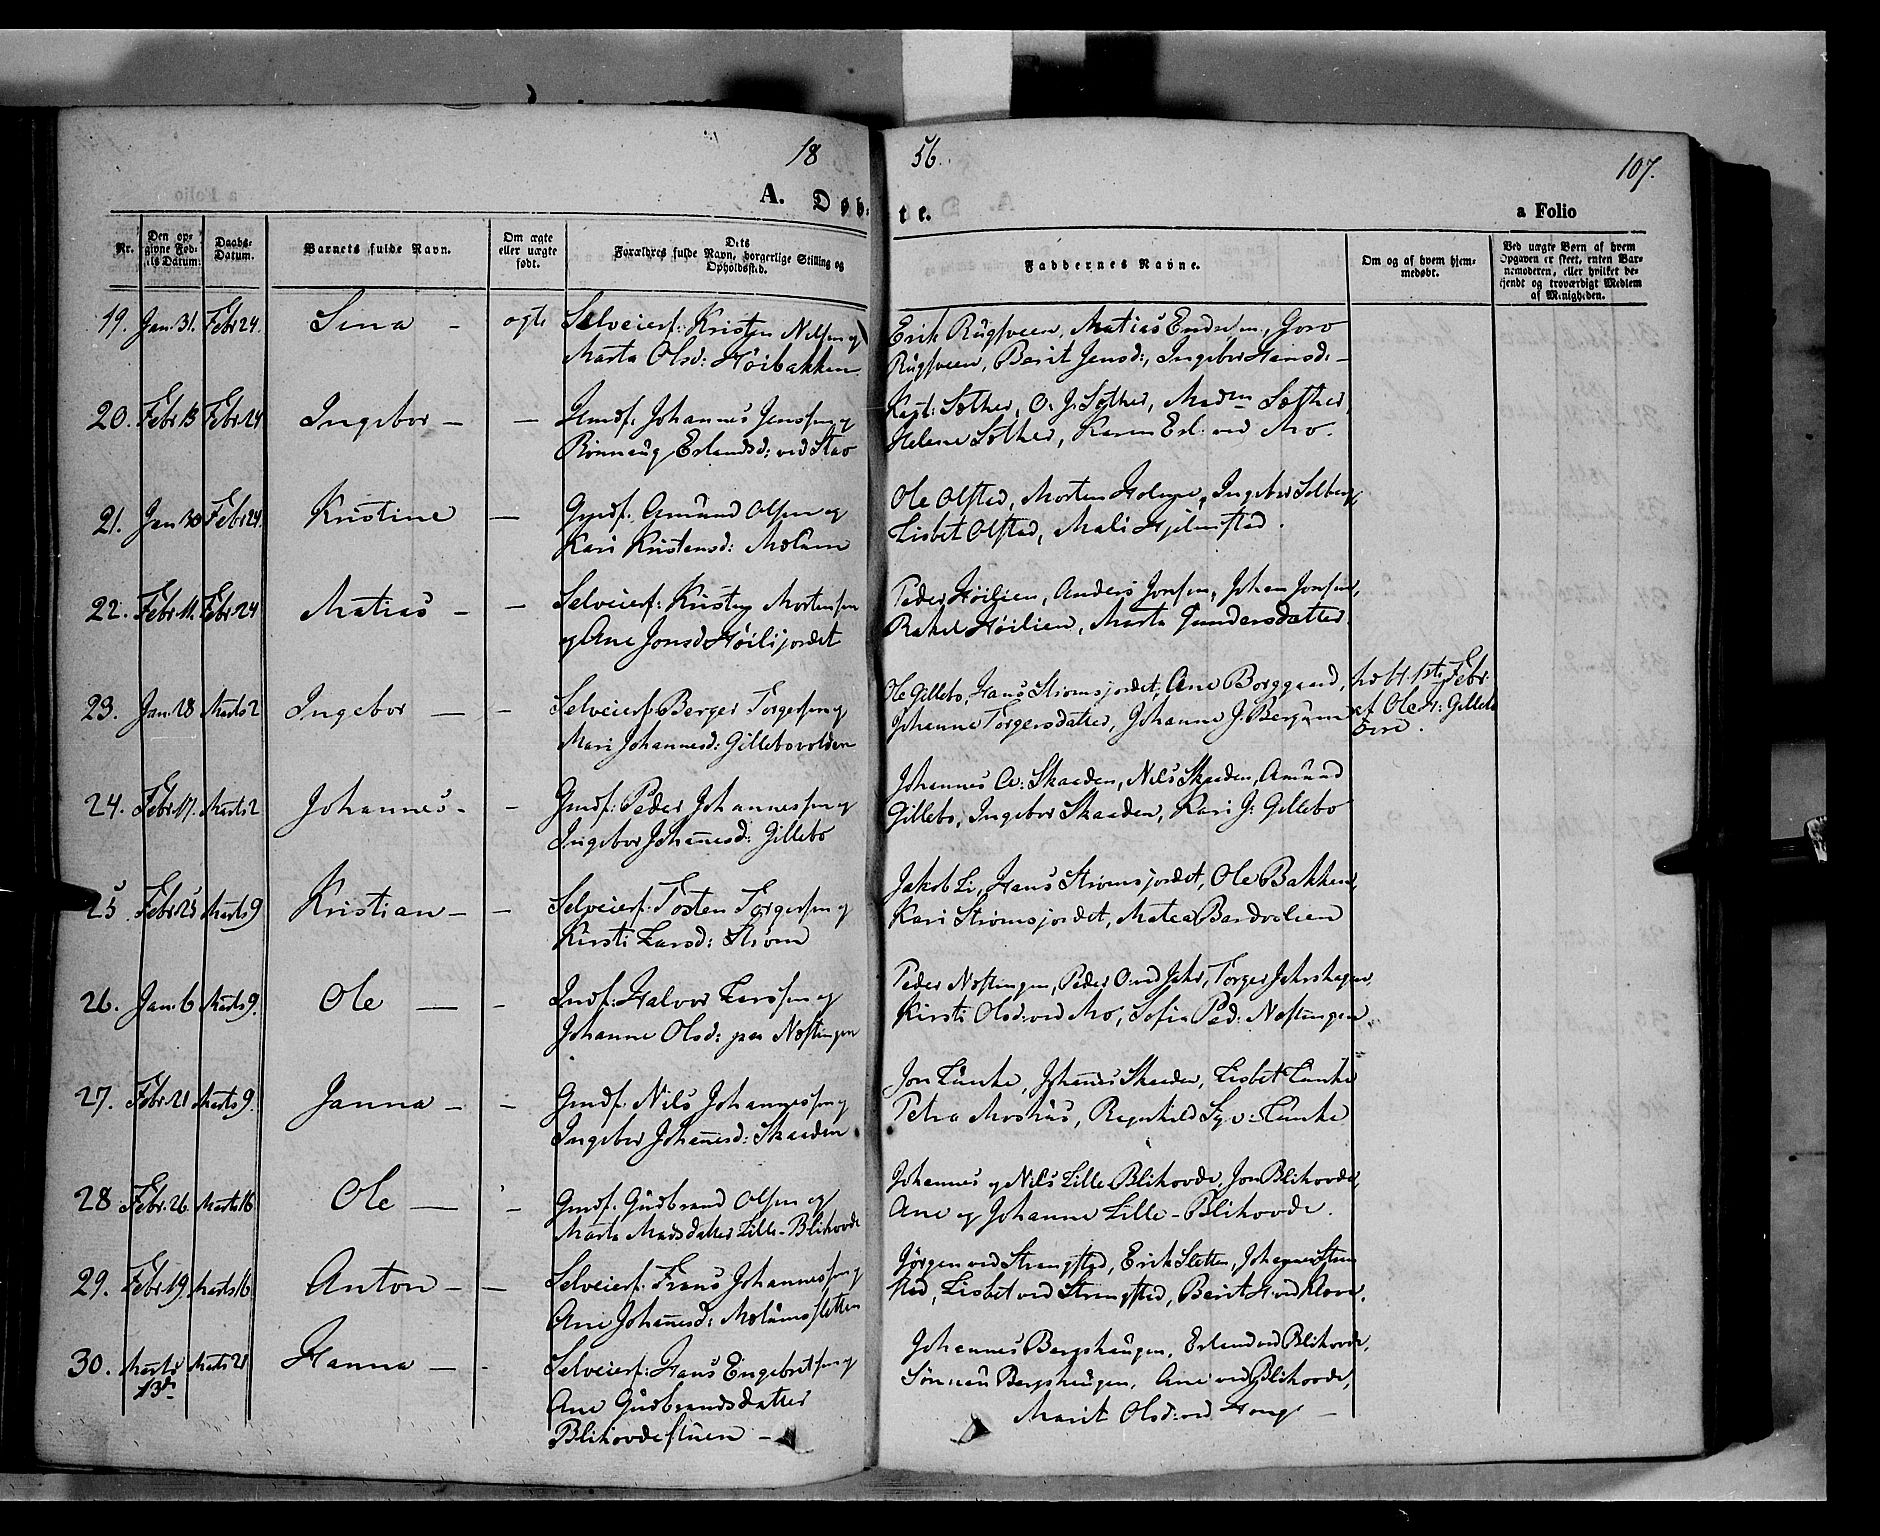 18
56.
107.
A. Døb-
te.
a Folio
Nr.
Den op-
givne Fød-
sels Datum.
Daabs-
Datum.
Barnets fulde Navn.
Om ægte
eller uægte
født.
Dets
Forældres fulde Navn, borgerlige Stilling og
Opholdssted.
Faddernes Navne.
Om og af hvem hjem-
medøbt.
Ved uægte Børn af hvem
Opgaven er skeet, enten Bar-
nemoderen, eller hvilket be-
kjendt og troværdigt Medlem
af Menigheden.
19. Jan. 31. Febr 24. Sina - ægte Selveierf: Kristen Nilsen og
Marta Olsd: Høibakken
Erik Rugsveen, Matias Endresen, Goro
Rugsveen, Berit Jensd:, Ingebor Hansd: -
20. Febr 13 Febr 24 Ingebor - - Gmdf. Johannes Jenssen og
Rønnaug Erlandsd: ved Stav
Sæther, O. J. Sæther, Madm Sæther,
Helene Sæther, Karen Erl: ved Mo.
21. Jan 30 Febr 24. Kristine - Gmdf. Amund Olsen og
Kari Kristensd: Mælum
Ole Olstad, Morten, Ingebor Solberg,
Lisbet Olstad, Mali Hjelmstad.
22. Febr 11. Febr 24 Matias - - Selveierf: Kristen Mortensen
og Ane Jonsd Høilijordet
Peder Høilien, Anders Jonsen, Johan Jonsen,
Rakel Høilien, Marta Gundersdatter.
23. Jan. 28 Marts 2 Ingebor - - Selveierf: Berger Torgersen og
Mari Johannesd: Gillebovolden
Ole Gillebo, Hans Strømsjordet, Ane Borggaard,
Johanne Torgersdatter, Johanne J. Bergum
1ste Febr.
af Ole H: Gillebo
24. Febr 17. Marts 2 Johannes - - Gmdf: Peder Johannessen og
Ingebor Johañesd: Gillebo
Johannes Skaaden, Nils Skaaden, Amund
Gillebo, Ingebor Skaaden, Kari J: Gillebo
25 Febr 25 Marts 9 Kristian - - Selveierf: Tosten Torgersen og
Kirsti Larsd: Strøm
Jakob Li, Hans Strømsjordet, Ole Bakken,
Kari Strømsjordet, Matea
26. Jan. 6 Marts 9. Ole - - Indf: Halvor Larssen og
Johanne Olsd: paa Næstingen
Peder Næstingen, Peder O: ved Jahr, Torger Jahrshagen,
Kirsti Olsd: ved Mo, Sofia Ped: Næstingen
27. Febr 21 Marts 9. Janna - - Gmdf. Nils Johannessen og
Ingebor Johañesd: Skaaden
Jon Lunke, Johañes Skaaden, Lisbet Lunke
Petra Moshus, Ragnhild Syv: Lunke
28 Febr. 26 Marts 16 Ole - - Gmdf. Gudbrand Olsen og
Marta Madsdatter Lille-Blikovde
Johannes og Nils Lille Blikovde, Jon Blikovde,
Ane og Johanne Lille-Blikovde.
29. Febr 19. Marts 16 Anton - - Selveierf: Frans Johannessen og
Ane Johañesd: Mælumssletten
Jørgen ved Strangstad, Erik Sletten, Johannes Stran
stad, Lisbet ved Strangstad, Berit H: ved
30. Marts 13de Marts 21 Hanna - - Selveierf: Hans Engebretsen og
Ane Gudbrandsdatter
Blikovdestuen -
Johannes Bergshaugen, Erland ved Blikovde,
Bergshaugen, Ane ved Blikovde,
Marit Olsd: ved Haug -